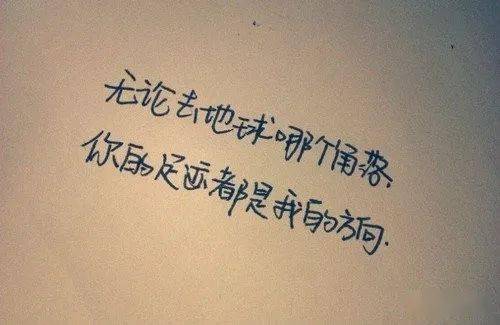 无论去地球哪个角落.
你的足迹都是我的方向.